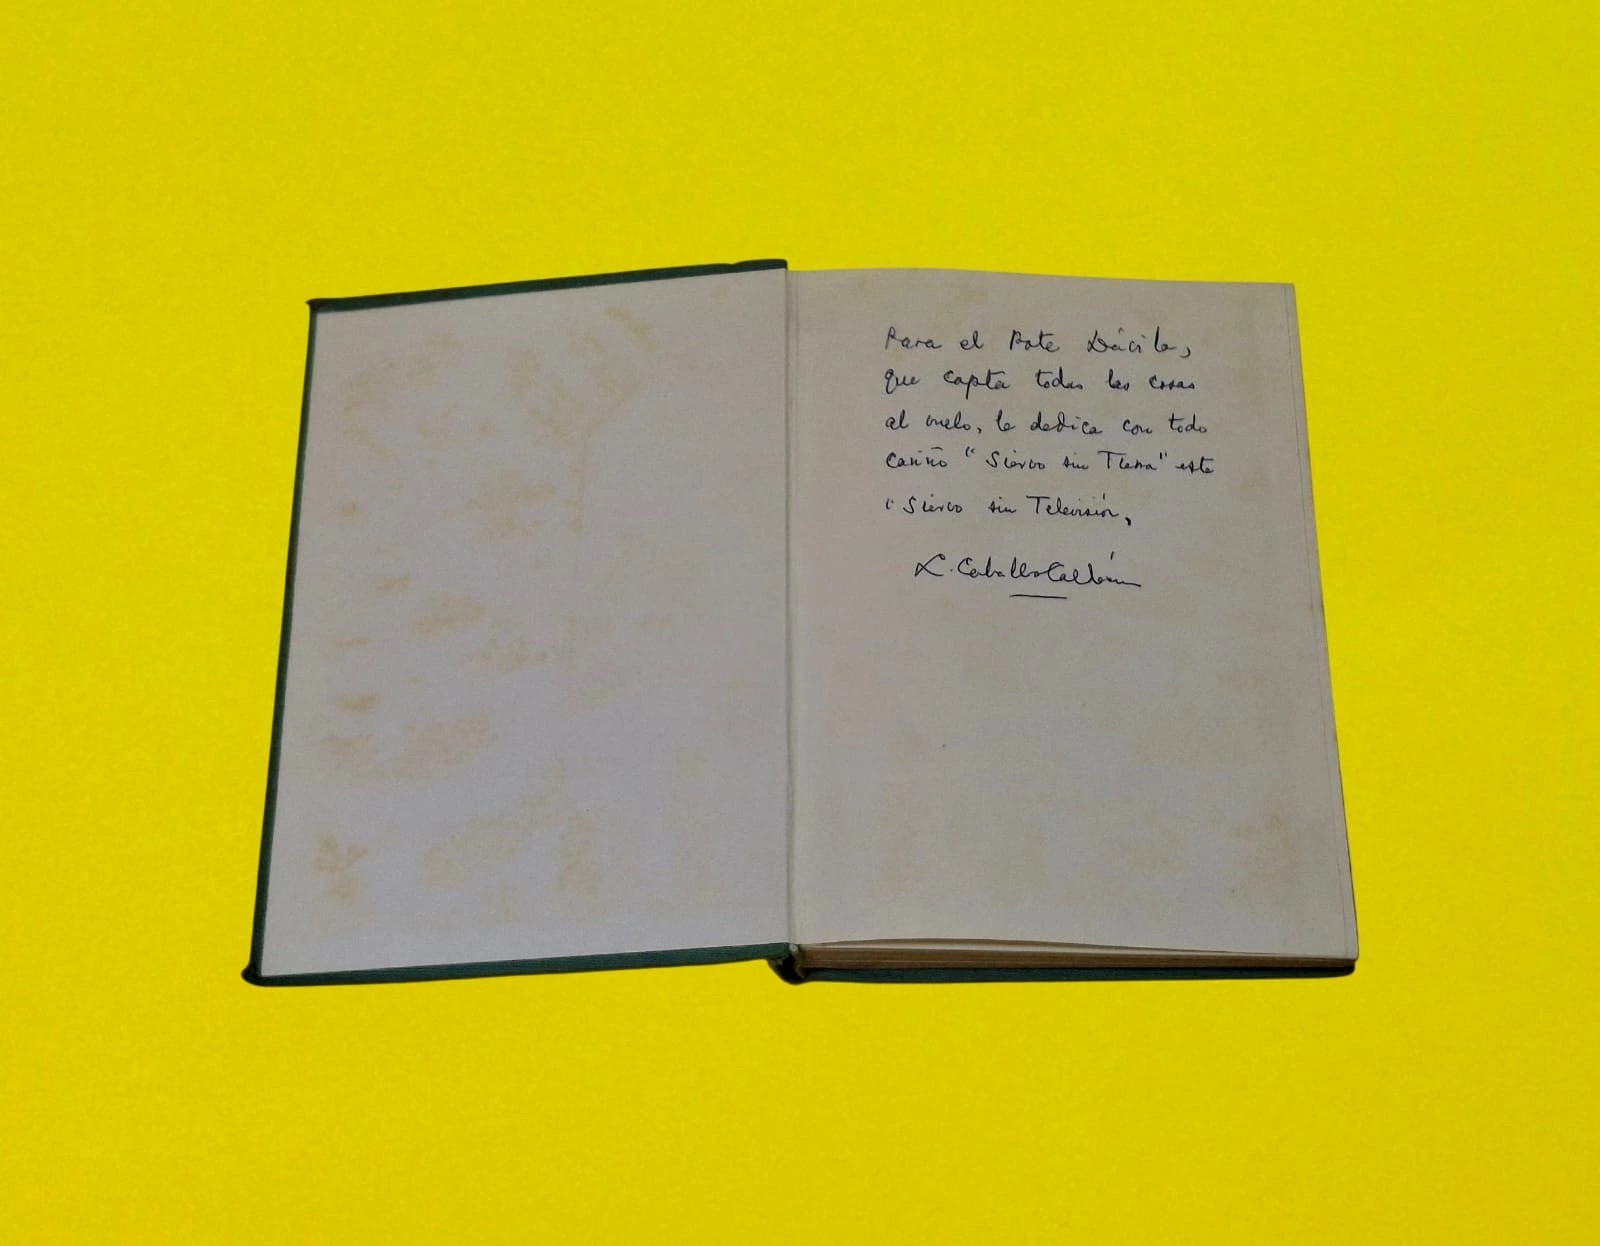 Para el Pote Dávila,
que capta todas las cosas
al vuelo, le dedica con todo
cariño "Siervo sin Tierra" este
"Siervo sin Televisión,
E. Caballero Calderón